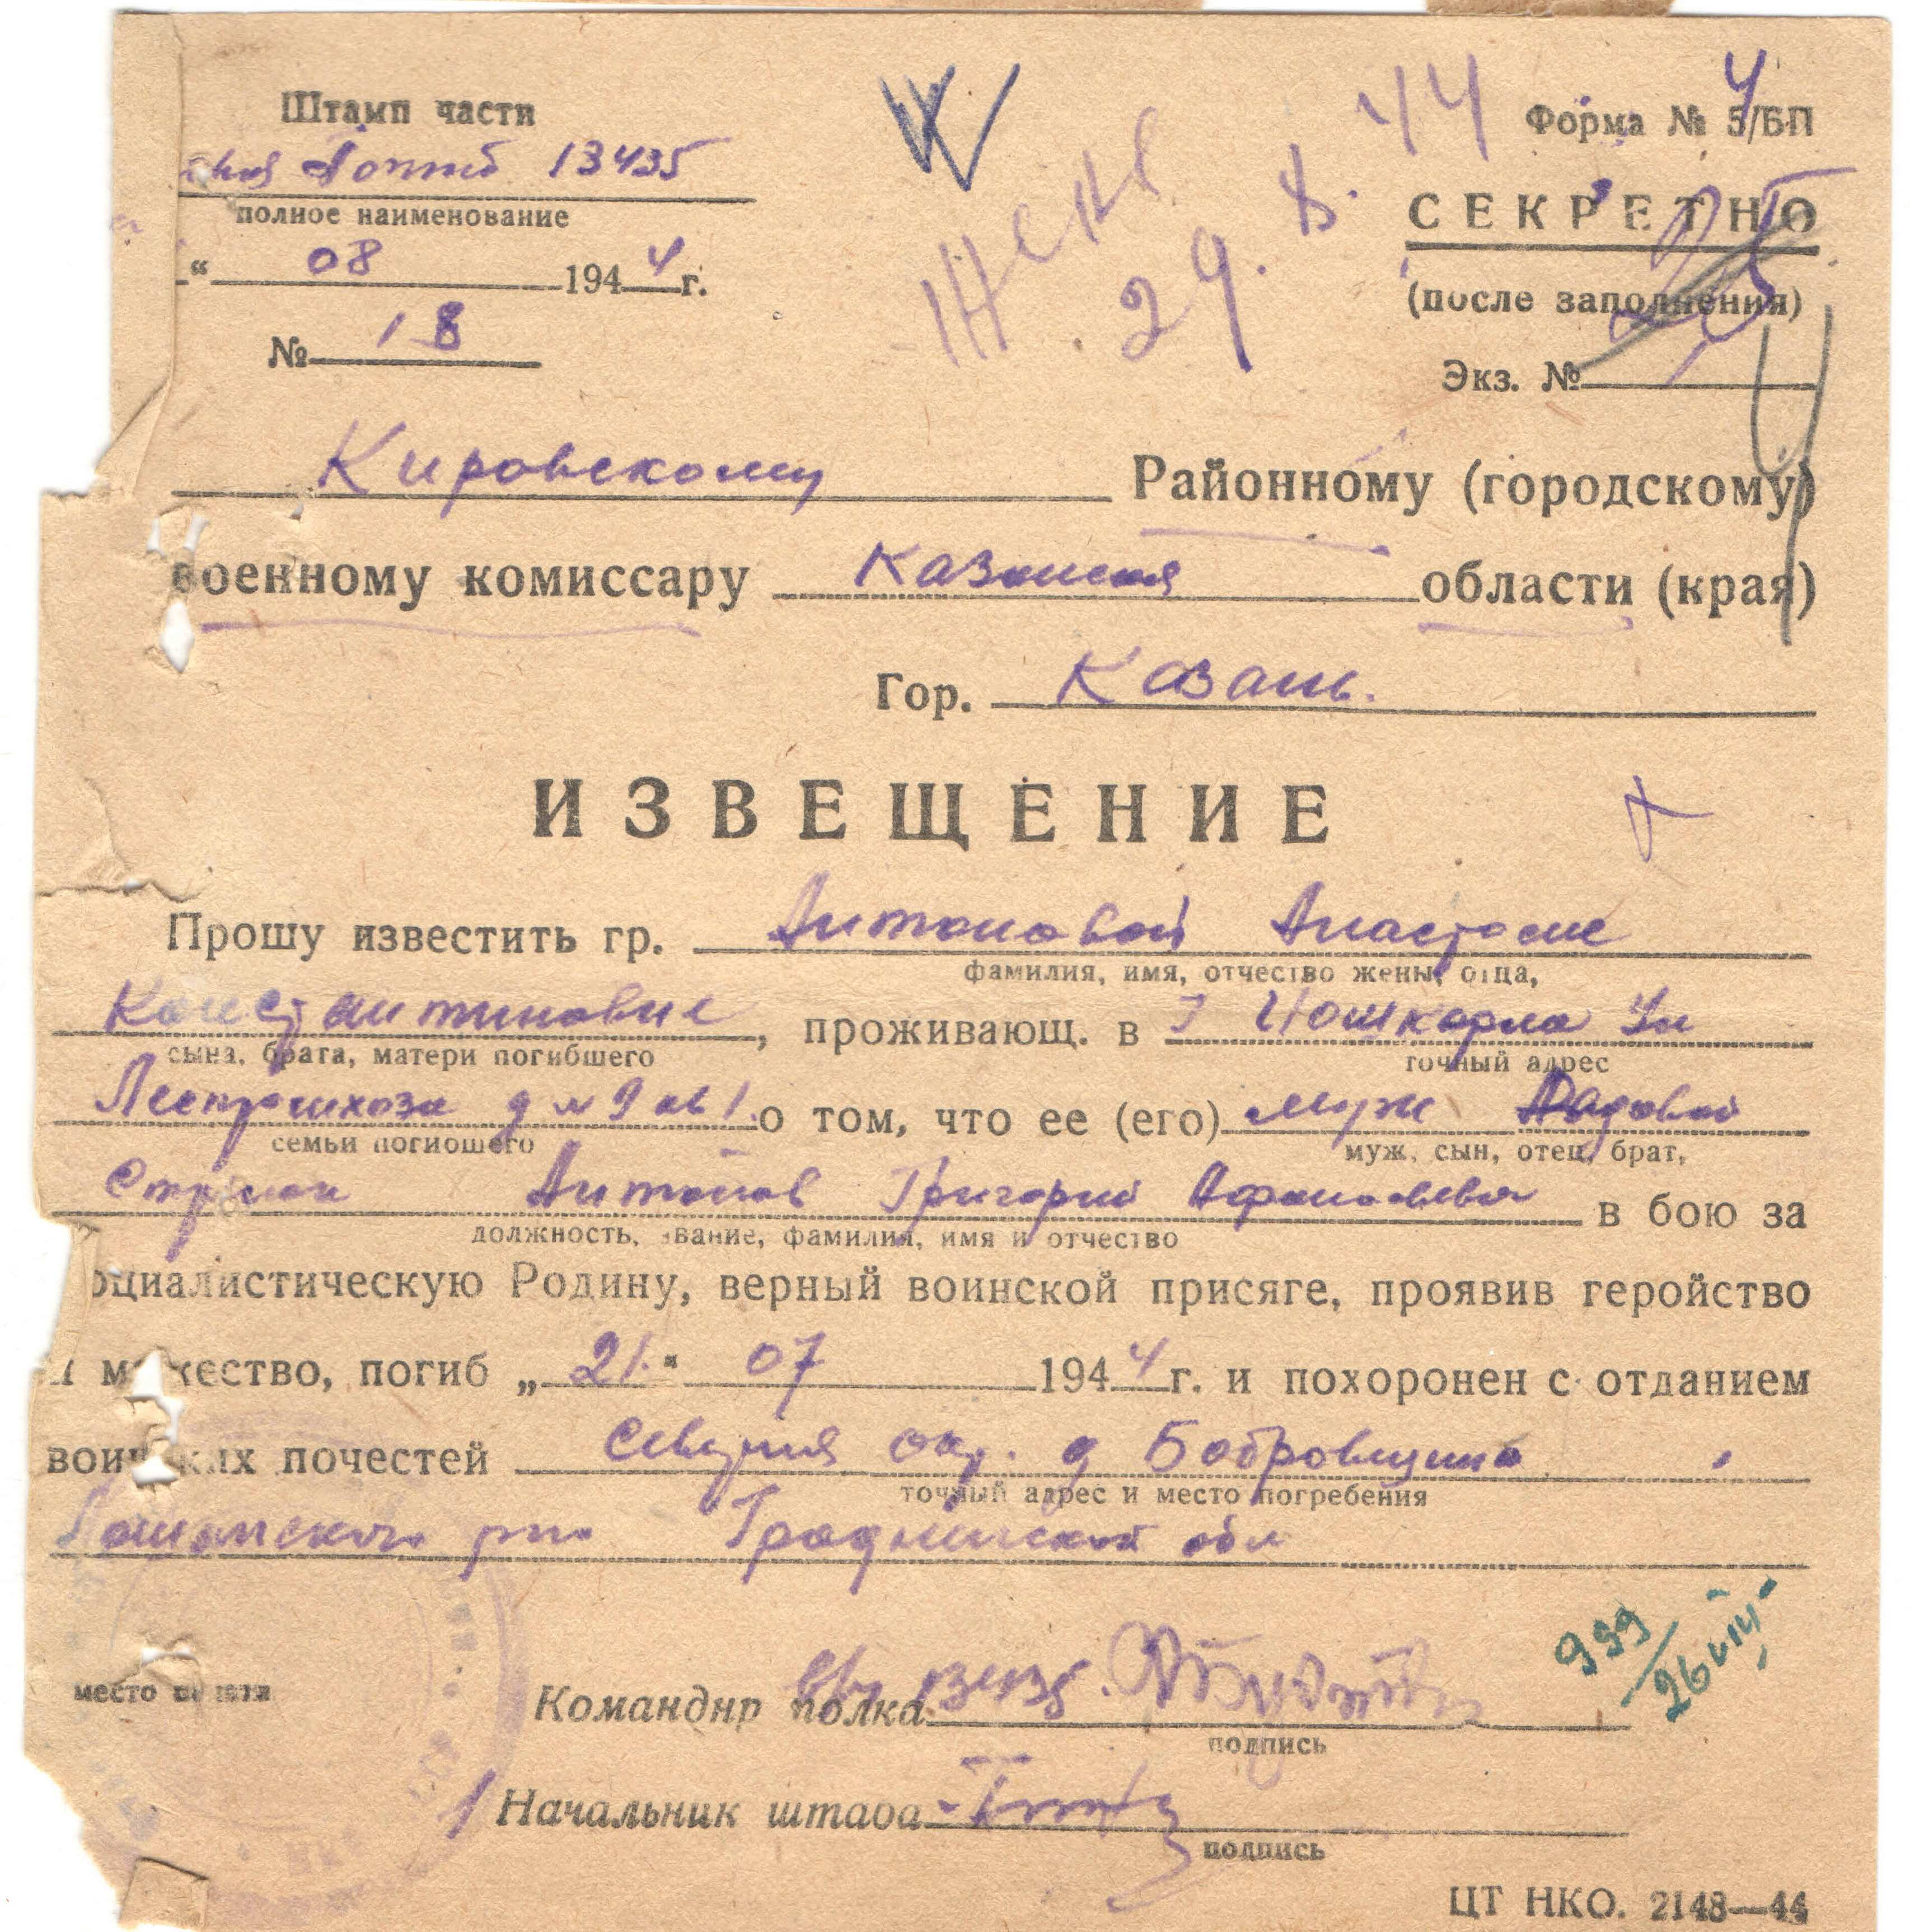 Штамп части
Форма № 5/БП
4
13435
полное наименование
СЕКРЕТНО
" 08 1944 г.
жене
29. 8. 44
(после заполнения)
№ 18
Экз. №
Кировскому Районному (городскому)
военному комиссару Казанская области (края)
Гор. Казань.
ИЗВЕЩЕНИЕ
Прошу известить гр. Антоновой Анастасие
фамилия, имя, отчество жены, отца,
Константиновне, проживающ. в г Йошкарла Ул
сына, брата, матери погибшего
точный адрес
Леспромхоза д № 9 кв 1. о том, что ее (его) муж Рядовой
семьи погибшего
муж, сын, отец, брат,
Стрелок Антонов Григорий Афанасьевич в бою за
должность, звание, фамилия, имя и отчество
оциалистическую Родину, верный воинской присяге, проявив геройство
и мужество, погиб „21." 07 1944 г. и похоронен с отданием
воинских почестей Северная окр. д Бобровщина,
точный адрес и место погребения
рна Гродненской обл
999/26
место печати
Командир полка в/ч 13435.
подпись
Начальник штаба
подпись
ЦТ НКО. 2148—44